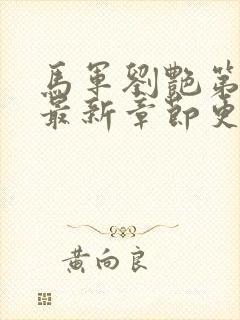 馬軍劉艷第
最新章節更
黃向良